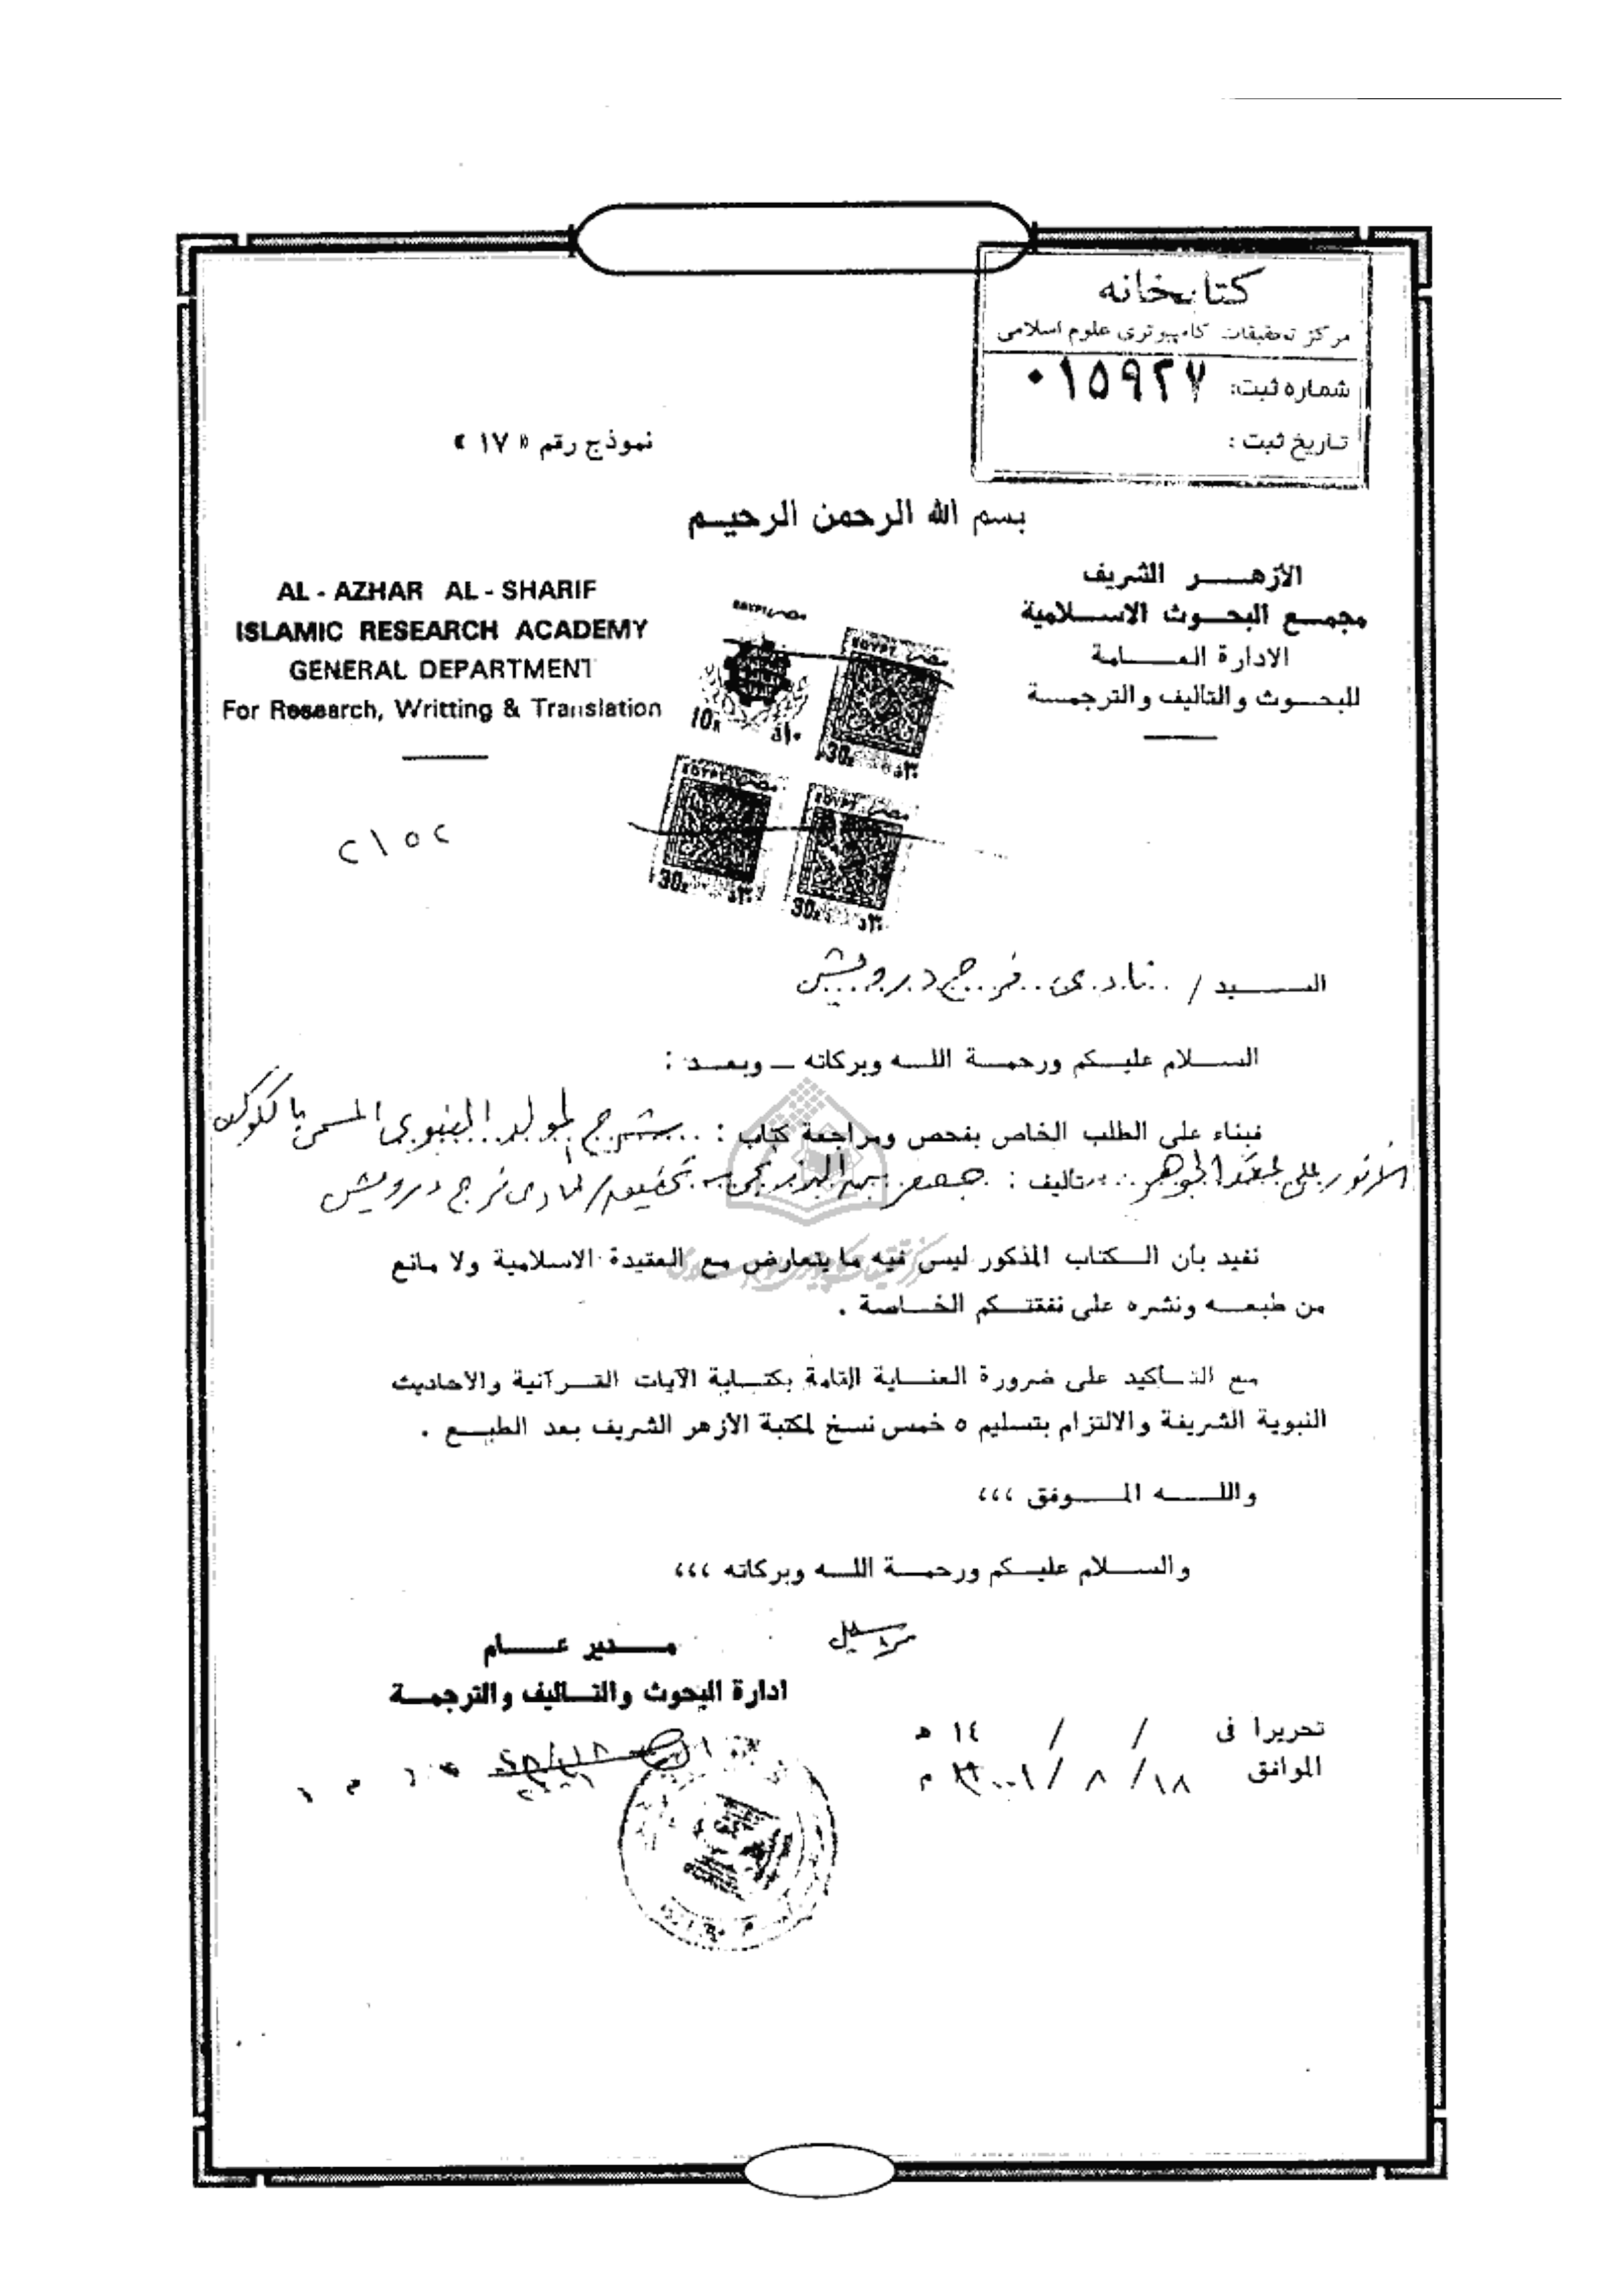 كتابخانه
مركز تحقيقات كامپيوترى علوم اسلامى
شماره ثبت: ٠١٥٩٢٧
تاريخ ثبت :
نموذج رقم « ١٧ »
بسم الله الرحمن الرحيم
الأزهر الشريف
مجمع البحوث الاسلامية
الادارة العامة
للبحوث والتاليف والترجمة
AL - AZHAR AL - SHARIF
ISLAMIC RESEARCH ACADEMY
GENERAL DEPARTMENT
For Research, Writting & Translation
EGYPT مصر
10
EGYPT مصر
30
EGYPT مصر
30
EGYPT مصر
30
٢١٥٢
السيد / نادى فرج درويش
السلام عليكم ورحمة الله وبركاته – وبعد :
فبناء على الطلب الخاص بفحص ومراجعة كتاب : شرح المولد النبوى المسمى بالكوكب
الأنور على عقد الجوهر تاليف : جعفر البرزنجى تحقيق / نادى فرج درويش
نفيد بأن الكتاب المذكور ليس فيه ما يتعارض مع العقيدة الاسلامية ولا مانع
من طبعه ونشره على نفقتكم الخاصة .
مع التأكيد على ضرورة العناية التامة بكتابة الآيات القرآنية والاحاديث
النبوية الشريفة والالتزام بتسليم ٥ خمس نسخ لمكتبة الأزهر الشريف بعد الطبع .
والله الموفق ،،،
والسلام عليكم ورحمة الله وبركاته ،،،
مدير عام
ادارة البحوث والتاليف والترجمة
تحريرا فى / / ١٤ هـ
الموافق ١٨ / ٨ / ٢٠٠١ م